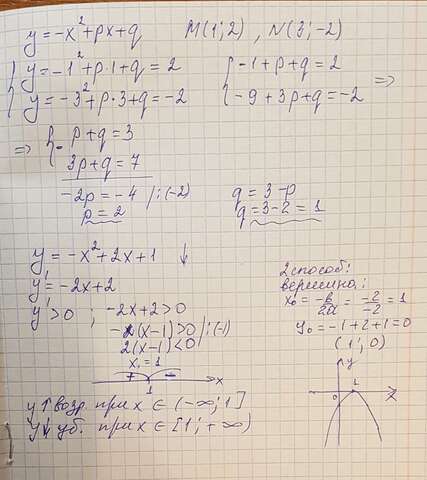 y = -x² + px + q    M(1; 2) , N(3; -2)
{ y = -1² + p·1 + q = 2    { -1 + p + q = 2
{ y = -3² + p·3 + q = -2    { -9 + 3p + q = -2 =>
=> { - p + q = 3
3p + q = 7
-2p = -4 /:(-2)    q = 3 - p
p = 2    q = 3 - 2 = 1
y = -x² + 2x + 1 ↓
y' = -2x + 2
y' > 0 ; -2x + 2 > 0
-2(x-1) > 0 /:(-1)
2(x-1) < 0
x₁ = 1
+ - x
1
y↑ возр. при x ∈ (-∞; 1]
y↓ уб. при x ∈ [1; +∞)
2 способ:
вершина:
x₀ = -b/2a = -2/-2 = 1
y₀ = -1 + 2 + 1 = 0
(1; 0)
y
0 1 x